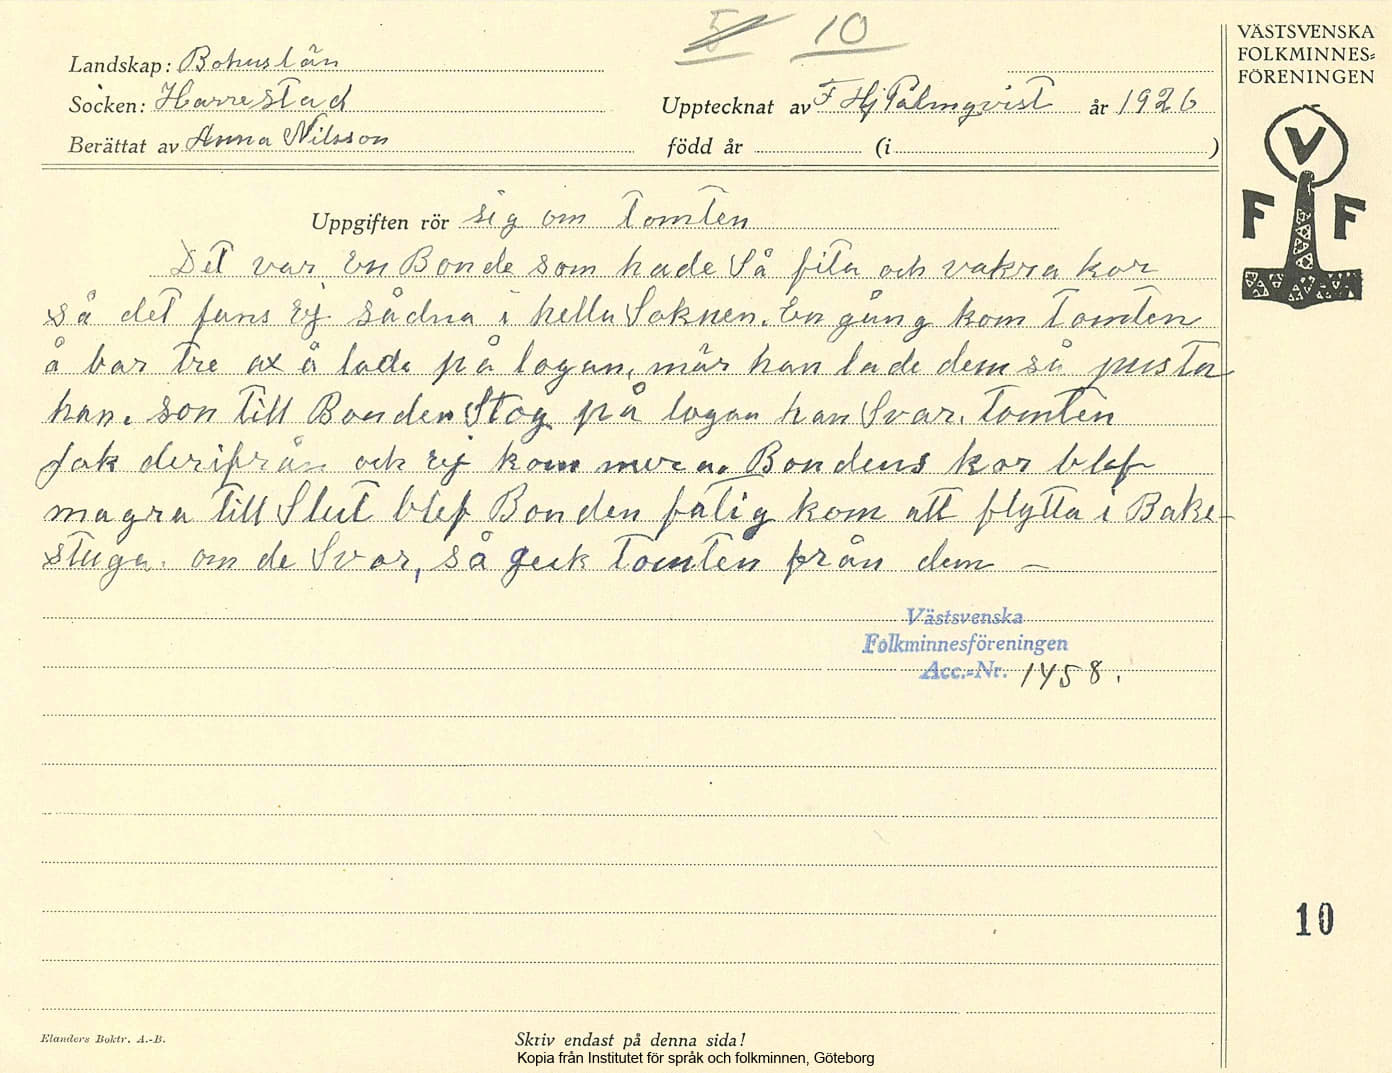 5 10
VÄSTSVENSKA
FOLKMINNES=
FÖRENINGEN
Landskap: Bohuslän
Socken: Harrestad
Upptecknat av F Hj Palmqvist år 1926
Berättat av Anna Nilsson
född år (i )
V
F F
Uppgiften rör sig om Tomten
Det var En Bonde som hade Så fita och vakra kor
så det fans Ej sådna i hella Soknen. En gång kom Tomten
å bar tre ax å lade på logan, når han lade dem så pusta
han. son till Bonden Stog på logan han Svar. Tomten
fok derifrån och Ej kom mera. Bondens kor blef
magra till Slut blef Bonden fatig kom att flytta i Bake-
stuga. om de Svor, så geck Tomten från dem –
Västsvenska
Folkminnesföreningen
Acc.-Nr. 1458.
10
Elanders Boktr. A.-B.
Skriv endast på denna sida!
Kopia från Institutet för språk och folkminnen, Göteborg